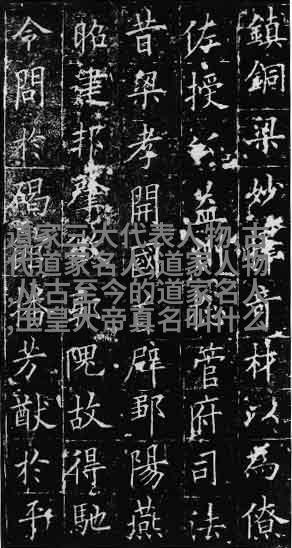 鎮銅梁妙奇材以為僚
佐授益州管府司法
昔梁孝開國辟鄒陽燕
昭建邦肇隗故得馳
令問於碣館播芳猷於平
道家三大代表人物,古
代道家名人(道家人物
,从古至今的道家名人
,玉皇大帝真名叫什么